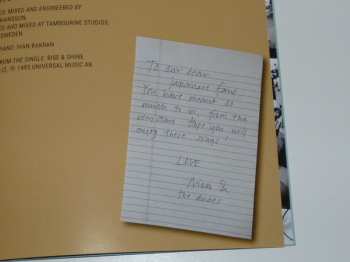 MIXED AND ENGINEERED BY
AND MIXED AT TAMBOURINE STUDIOS,
SWEDEN
IVAN RAKHAN
FROM THE SINGLE, RISE & SHINE
1995 UNIVERSAL MUSIC AB.
To our dear
Japanese fans
You have meant so
much to us, from the
Hope you will
enjoy these songs!
LOVE
Nina &
the